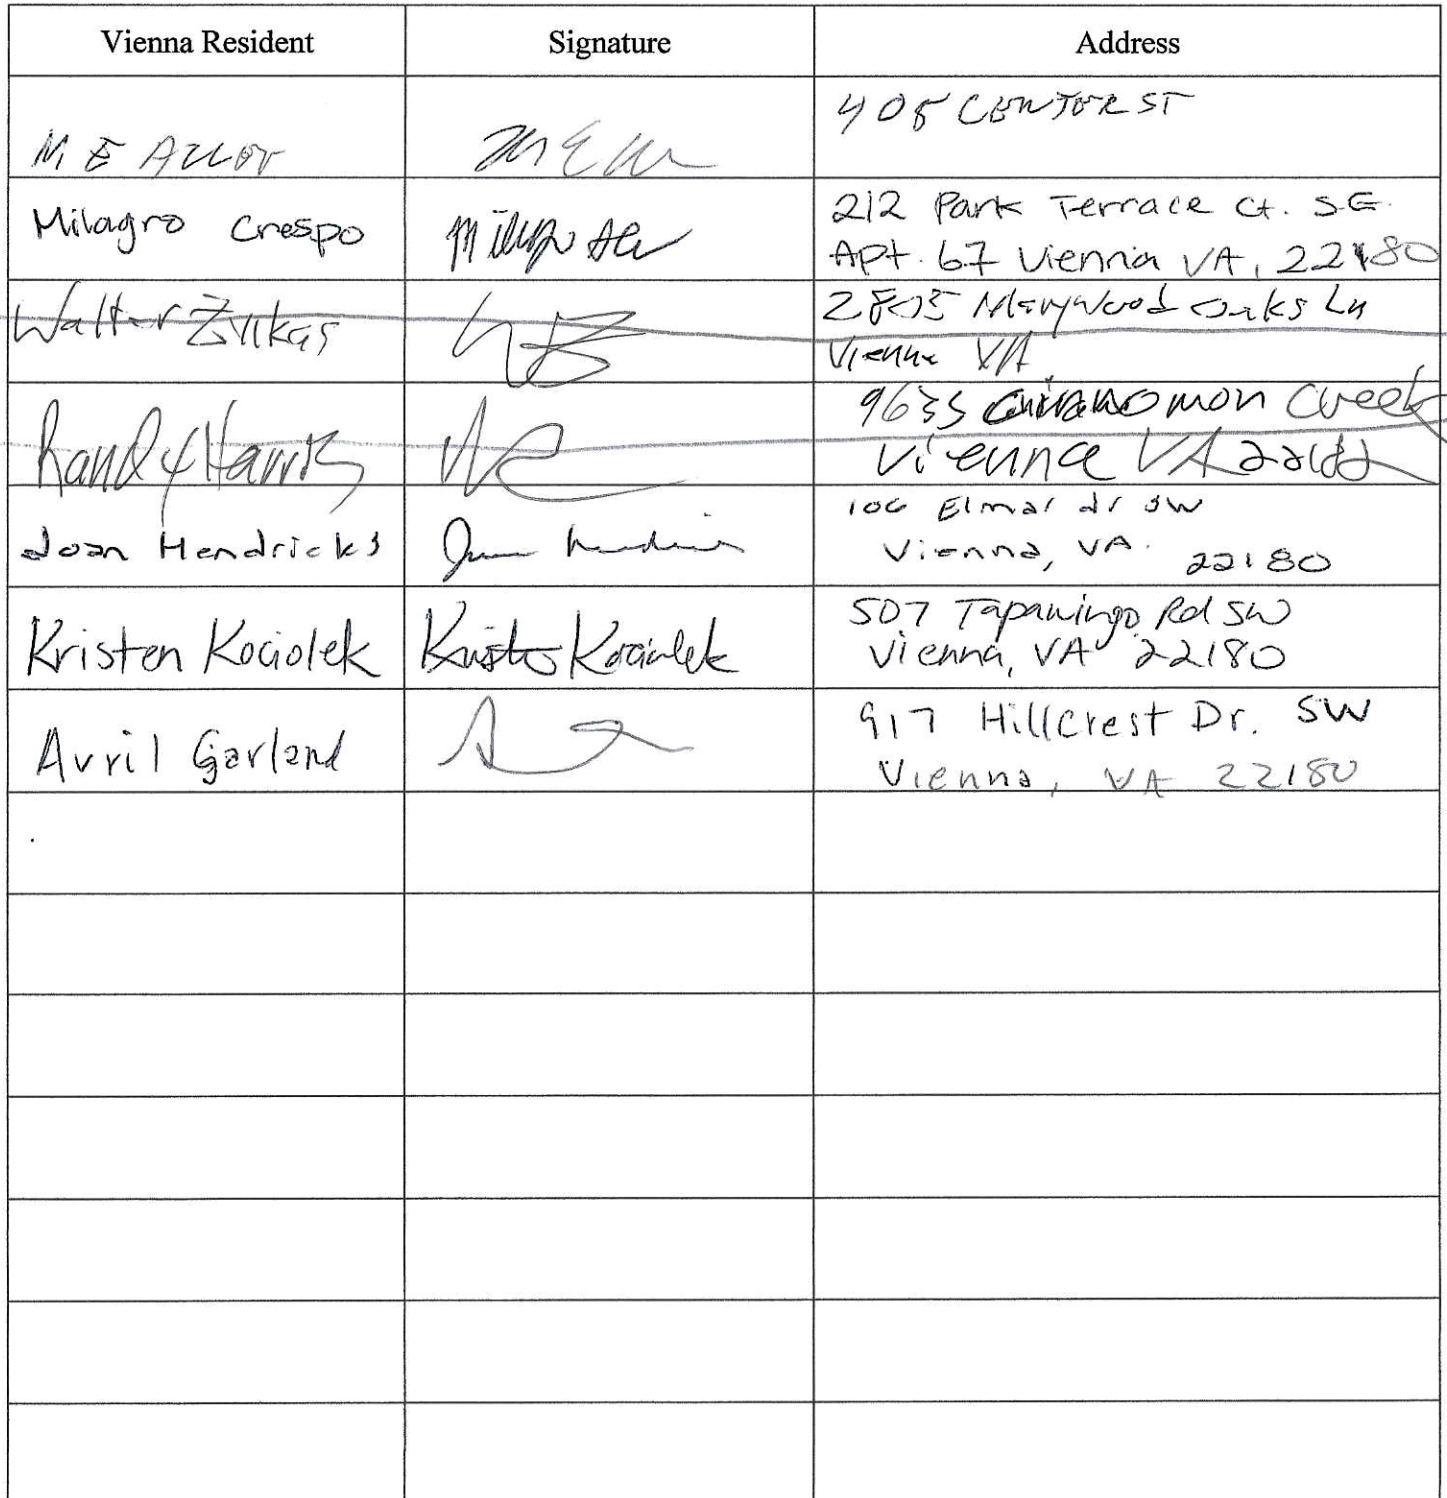 Vienna Resident Signature Address
M E 408 CENTER ST
Milagro Crespo 212 Park Terrace Ct. SE.
Apt. 67 Vienna VA, 22180
Walter 2805 Marywood Oaks Ln
Vienna VA
Randy Harris 9635 Cinnomon Creek
Vienna VA
Joan Hendricks 106 Elmar dr SW
Vienna, VA. 22180
Kristen Kociolek Kristen Kociolek 507 Tapawingo Rd SW
Vienna, VA 22180
Avril Garland 917 Hillcrest Dr. SW
Vienna, VA 22180